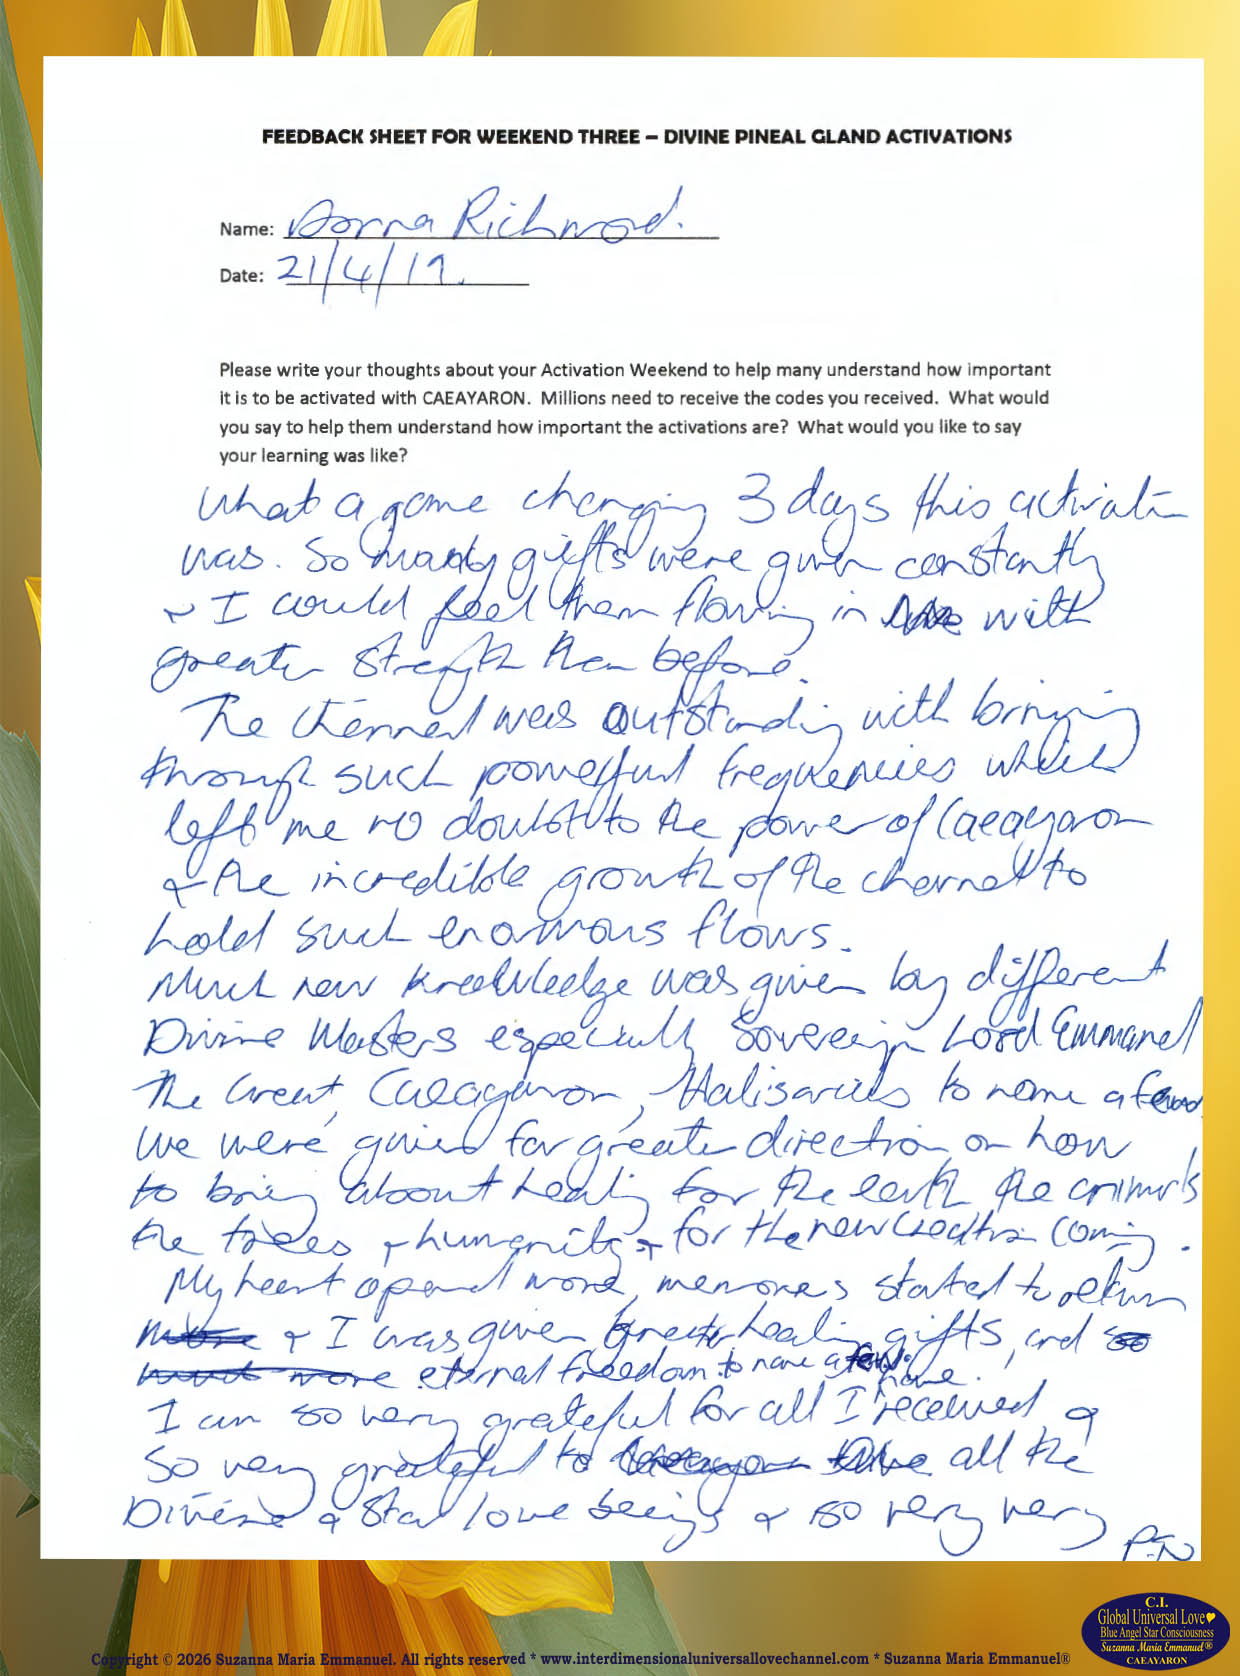 FEEDBACK SHEET FOR WEEKEND THREE – DIVINE PINEAL GLAND ACTIVATIONS
Name: Donna Richmond.
Date: 21/4/19.
Please write your thoughts about your Activation Weekend to help many understand how important
it is to be activated with CAEAYARON. Millions need to receive the codes you received. What would
you say to help them understand how important the activations are? What would you like to say
your learning was like?
What a game changing 3 days this activation
was. So many gifts were given constantly
I could feel them flowing in with
greater strength than before.
The channel was outstanding with bringing
through such powerful frequencies which
left me no doubt to the power of Caeayaron
& the incredible growth of the channel to
hold such enormous flows.
Much new knowledge was given by different
Divine Masters especially Sovereign Lord Emmanuel
The Great, Caeayaron, Halisarius to name a few
We were given far greater direction on how
to bring about healing for the earth the animals
the trees & humanity & for the new creation coming.
My heart opened more, memories started to return
& I was given greater healing gifts, and
eternal freedom to name a few.
I am so very grateful for all I have received &
so very grateful to all the
Divine & Star love beings & so very very
P.T.O
C.I.
Global Universal Love
Blue Angel Star Consciousness
Suzanna Maria Emmanuel®
CAEAYARON
Copyright © 2026 Suzanna Maria Emmanuel. All rights reserved * www.interdimensionaluniversallovechannel.com * Suzanna Maria Emmanuel®